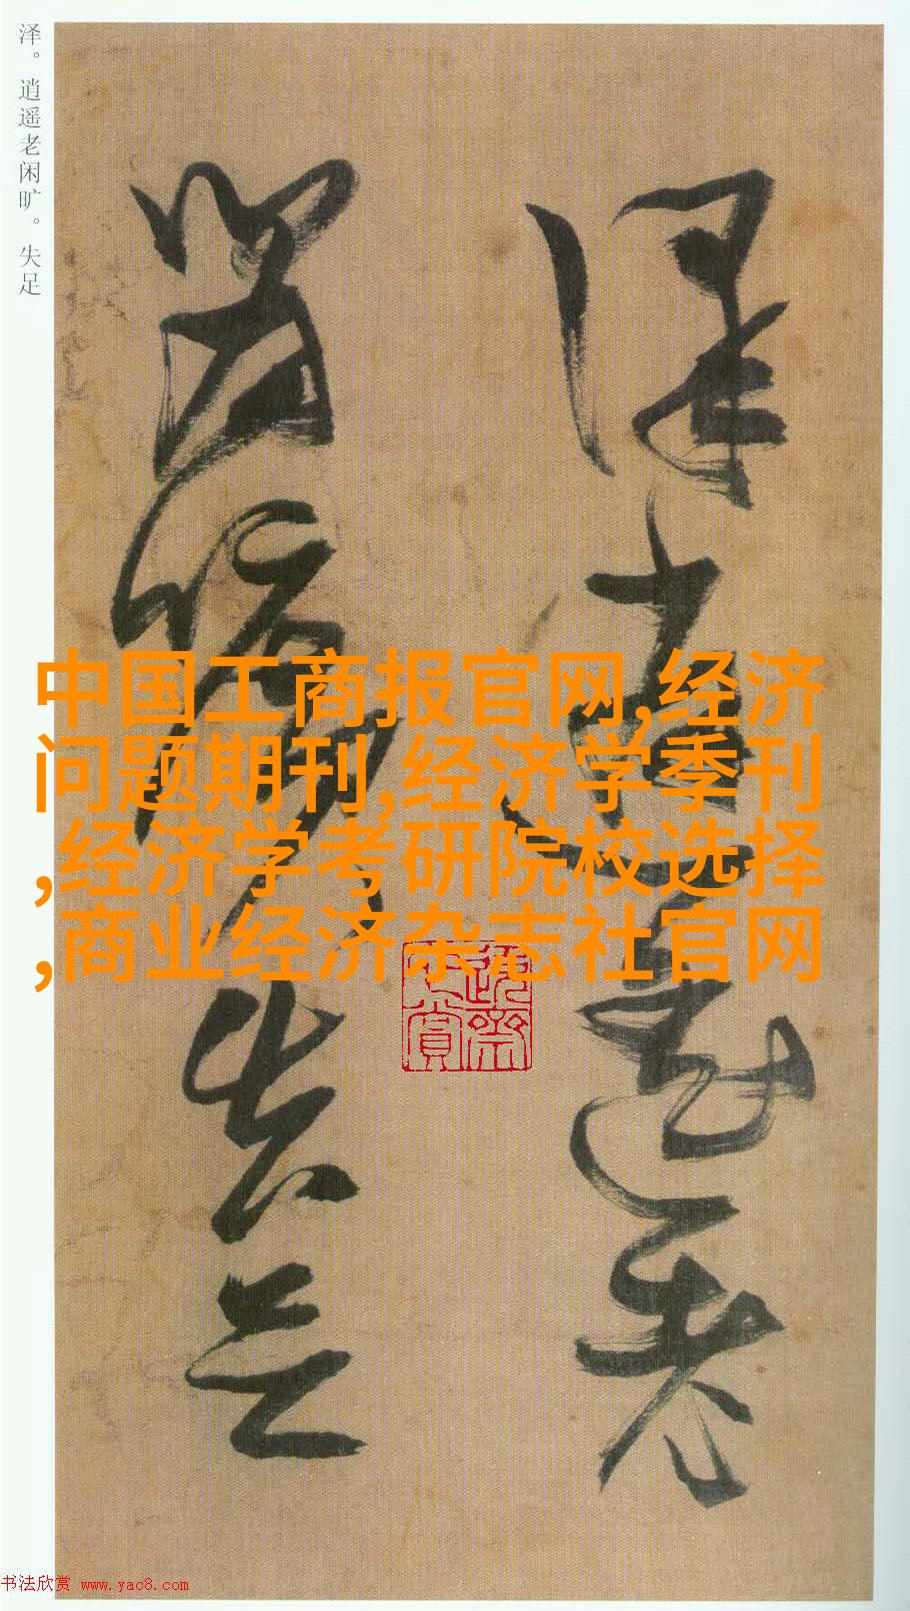 泽。逍遥老闲旷。失足
泽逍遥老
闲旷失足
中国工商报官网,经济
问题期刊,经济学季刊
,经济学考研院校选择
,商业经济杂志社官网
书法欣赏 www.yac8.com